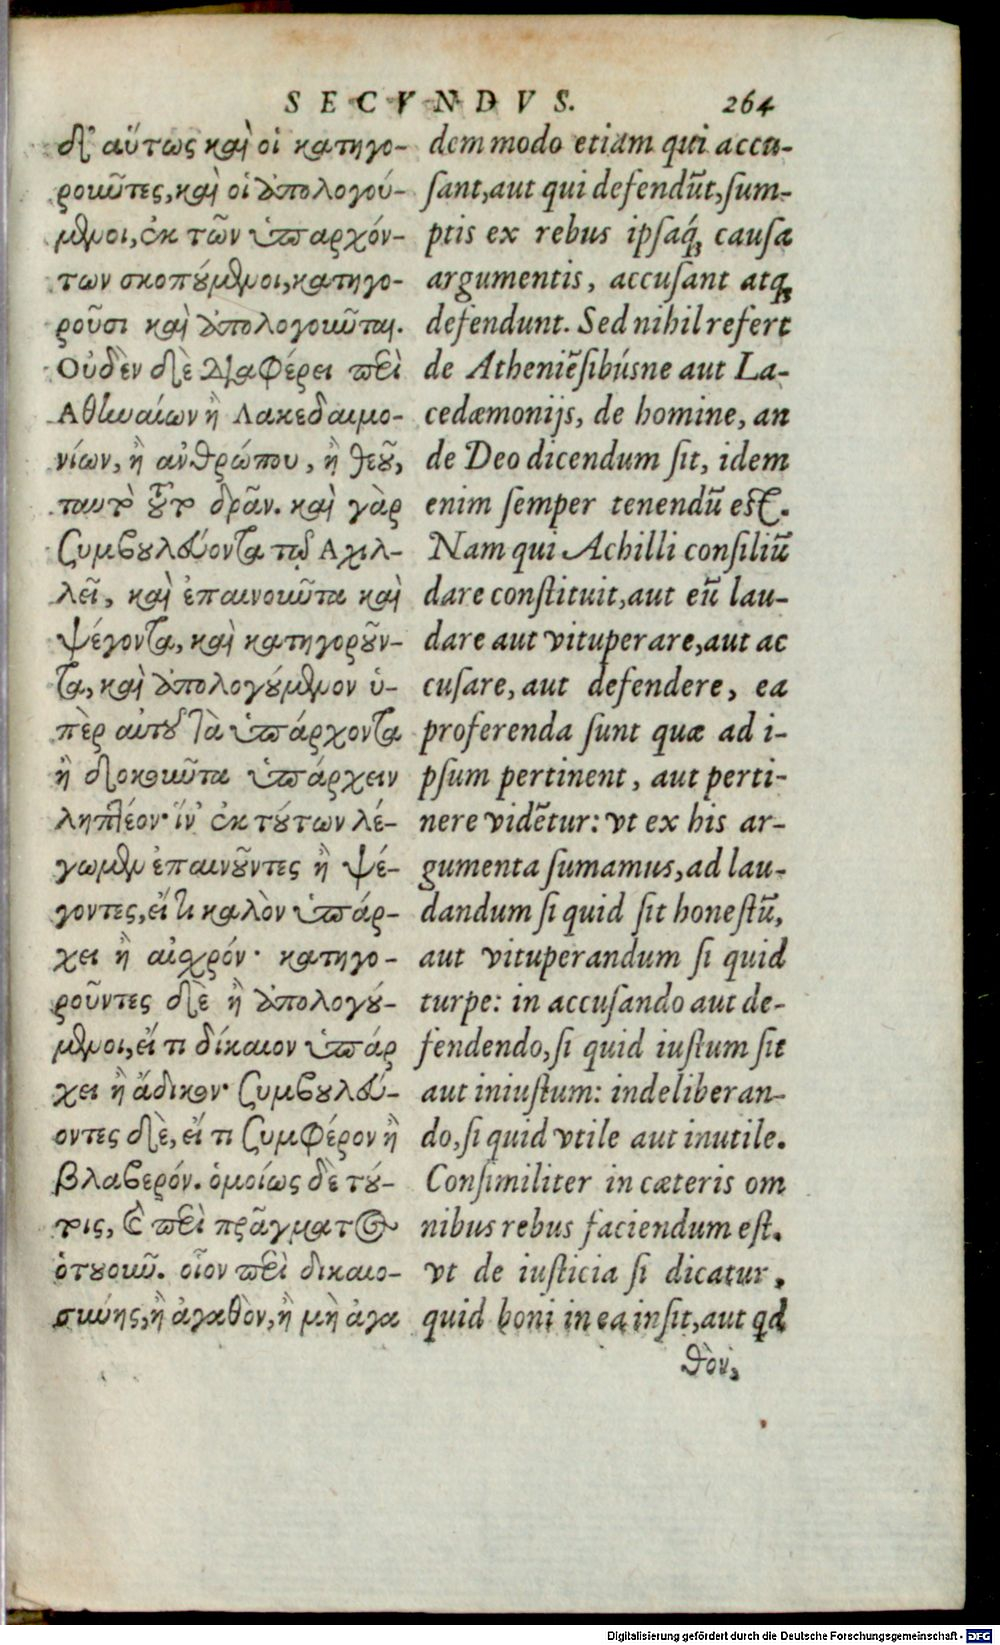 SECVNDVS. 264
δ' αὕτως καὶ οἱ κατηγο-
ροῦντες, καὶ οἱ ἀπολογού-
μενοι, ἐκ τῶν ὑπαρχόν-
των σκοπούμενοι, κατηγο-
ροῦσι καὶ ἀπολογοῦνται.
Οὐδὲν δὲ διαφέρει περὶ
Ἀθηναίων ἢ Λακεδαιμο-
νίων, ἢ ἀνθρώπου, ἢ θεοῦ,
ταυτὸ τοῦτο δρᾶν. καὶ γὰρ
συμβουλεύοντα τῷ Ἀχιλ-
λεῖ, καὶ ἐπαινοῦντα καὶ
ψέγοντα, καὶ κατηγοροῦν-
τα, καὶ ἀπολογούμενον ὑ-
πὲρ αὐτοῦ τὰ ὑπάρχοντα
ἢ δοκοῦντα ὑπάρχειν
ληπτέον· ἵν' ἐκ τούτων λέ-
γωμεν ἐπαινοῦντες ἢ ψέ-
γοντες, εἴ τι καλὸν ὑπάρ-
χει ἢ αἰσχρόν· κατηγο-
ροῦντες δὲ ἢ ἀπολογού-
μενοι, εἴ τι δίκαιον ὑπάρ
χει ἢ ἄδικον· συμβουλεύ-
οντες δὲ, εἴ τι συμφέρον ἢ
βλαβερόν. ὁμοίως δὲ τού-
τοις, καὶ περὶ πράγματος
ὁτουοῦν. οἷον περὶ δικαιο-
σύνης, ἢ ἀγαθὸν, ἢ μὴ ἀγα
dem modo etiam qui accu-
sant, aut qui defendūt, sum-
ptis ex rebus ipsaq́; causa
argumentis, accusant atq;
defendunt. Sed nihil refert
de Atheniēsibúsne aut La-
cedæmonijs, de homine, an
de Deo dicendum sit, idem
enim semper tenendū est.
Nam qui Achilli consiliū
dare constituit, aut eū lau-
dare aut vituperare, aut ac
cusare, aut defendere, ea
proferenda sunt quæ ad i-
psum pertinent, aut perti-
nere vidētur: vt ex his ar-
gumenta sumamus, ad lau-
dandum si quid sit honestū,
aut vituperandum si quid
turpe: in accusando aut de-
fendendo, si quid iustum sit
aut iniustum: in deliberan-
do, si quid vtile aut inutile.
Consimiliter in cæteris om
nibus rebus faciendum est.
vt de iusticia si dicatur,
quid boni in ea insit, aut qd
θὸν,
Digitalisierung gefördert durch die Deutsche Forschungsgemeinschaft - DFG